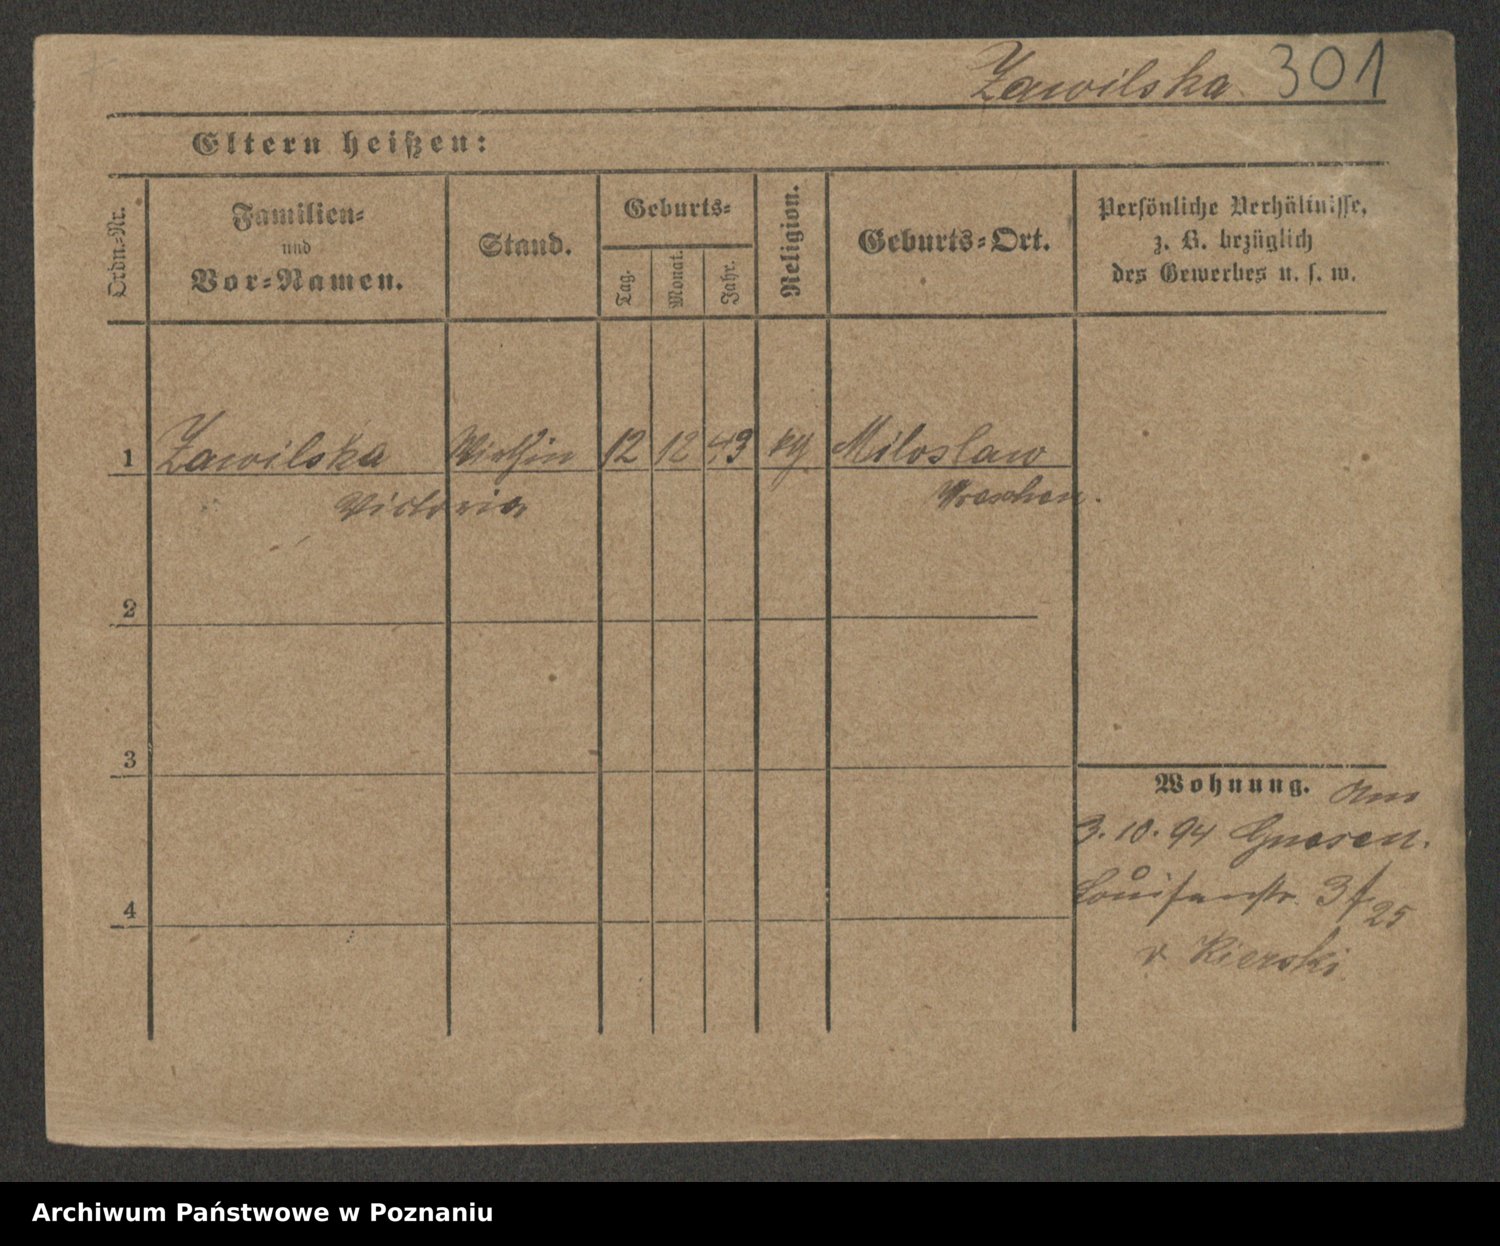 Zawilska 301
Eltern heißen:
Ordn.-Nr.
Familien-
und
Vor-Namen.
Stand.
Geburts-
Tag.
Monat.
Jahr.
Religion.
Geburts-Ort.
Persönliche Verhältnisse,
z. B. bezüglich
des Gewerbes u. s. w.
1 Zawilska Wirthin 12 12 49 kg Miloslaw
Victoria Wreschen.
2
3
Wohnung. Am
3. 10. 94 Gnesen.
Louisenstr. 3
25
v Kierski
4
Archiwum Państwowe w Poznaniu